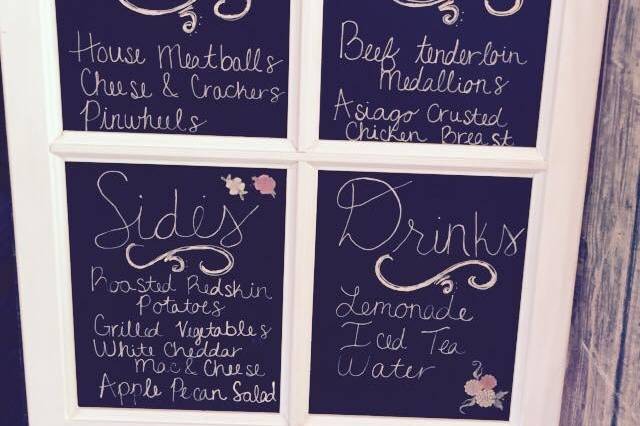 House Meatballs
Cheese & Crackers
Pinwheels
Beef tenderloin
Medallions
Asiago Crusted
Chicken Breast
Sides
Roasted Redskin
Potatoes
Grilled Vegetables
White Cheddar
Mac & Cheese
Apple Pecan Salad
Drinks
Lemonade
Iced Tea
Water